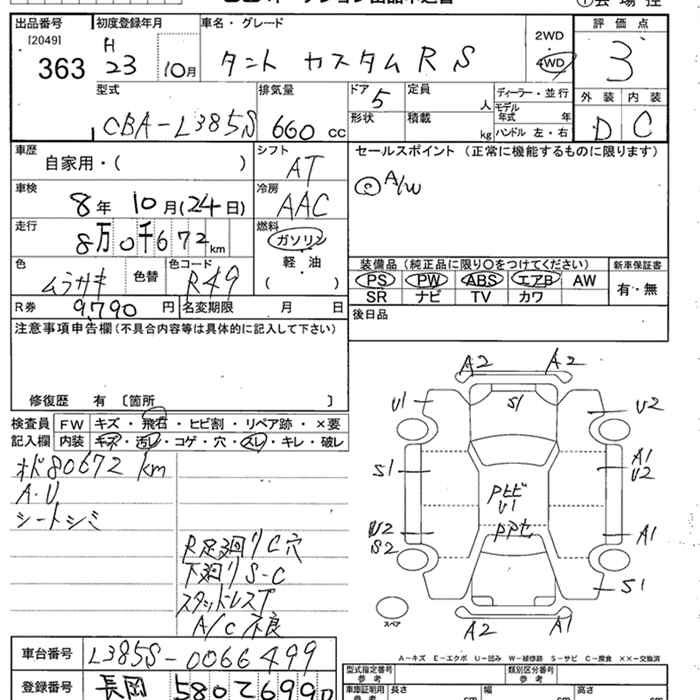 出品番号 初度登録年月 車名・グレード 評価点
[2049] H 2WD
363 23 10月 タント カスタム RS 4WD 3
型式 排気量 ドア 5 定員 人 ディーラー・並行 外装 内装
CBA-L385S 660 cc 形状 積載 kg モデル年式 年 ハンドル 左・右 D C
車歴 自家用・( ) シフト AT セールスポイント (正常に機能するものに限ります)
車検 8年 10月(24日) 冷房 AAC A/W
走行 8万0千672km 燃料 ガソリン
軽・油
( )
装備品 (純正品に限り○をつけてください) 新車保証書
色 ムラサキ 色替 色コード R49 PS PW ABS エアB AW 有・無
SR ナビ TV カワ
R券 9,790円 名変期限 月 日 後日品
注意事項申告欄(不具合内容等は具体的に記入して下さい)
修復歴 有 〔箇所 〕
検査員 FW キズ・飛石・ヒビ割・リペア跡・×要
記入欄 内装 キズ・汚レ・コゲ・穴・スレ・キレ・破レ
オド80672km
A・U
シートシミ
R足廻りC穴
下廻りS-C
スタッドレス
A/C不良
A2 A2
U1 S1 U2
S1 A1
U2
U1
U2 A1
S2 S1
スペア A2 A1
A-キズ E-エクボ U-凹み W-補修跡 S-サビ C-腐食 ××-交換済
車台番号 L385S-0066499
登録番号 長岡 580
型式指定番号 類別区分番号
参考 参考
車庫証明用 長さ 幅 高さ